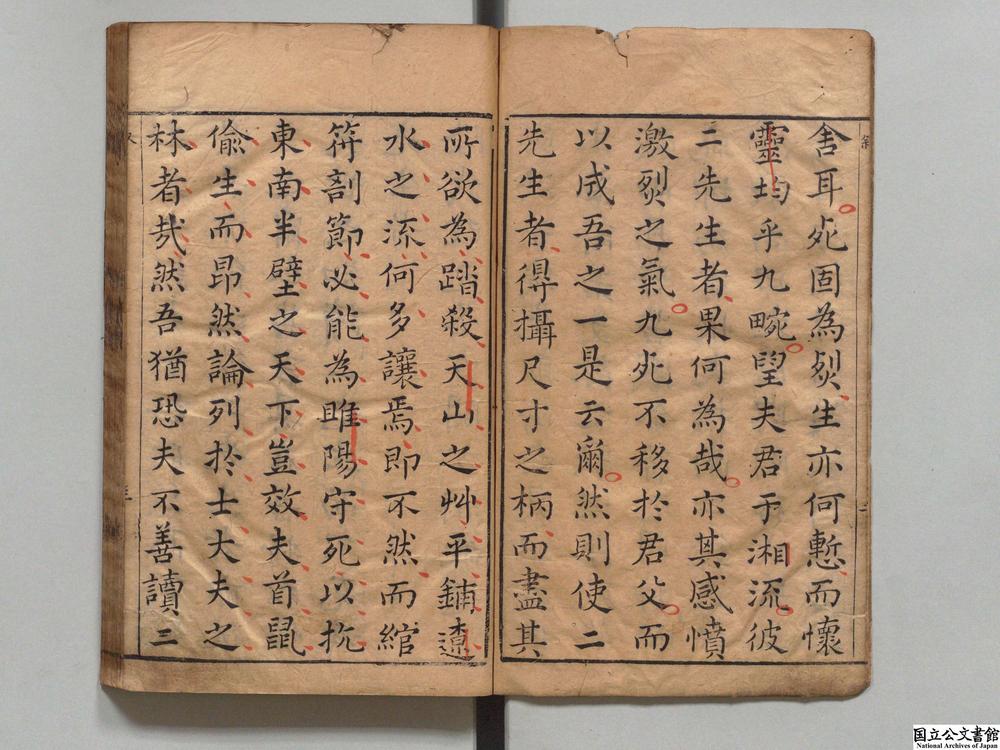 舍耳死固為烈生亦何慙而懷
靈均乎九畹望夫君于湘流彼
二先生者果何為哉亦其感憤
激烈之氣九死不移於君父而
以成吾之一是云爾然則使二
先生者得攝尺寸之柄而盡其
所欲為踏殺天山之艸平鋪遼
水之流何多讓焉即不然而綰
符剖節必能為睢陽守死以抗
東南半壁之天下豈效夫首鼠
偷生而昂然論列於士大夫之
林者哉然吾猶恐夫不善讀二
国立公文書館
National Archives of Japan